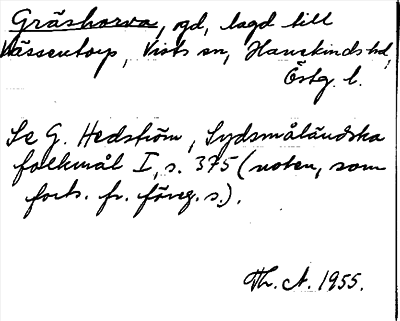 Gräshorva, ogd, lagd till
Vässentorp, Vists sn, Hanekinds hd,
Östg. l.
Se G. Hedström, Sydsmåländska
folkmål I, s. 375 (noten, som
forts. fr. föreg. s.).
Th. A. 1955.